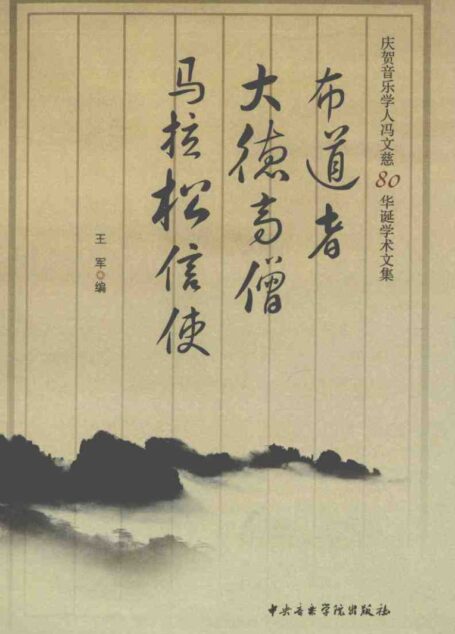 庆贺音乐学人冯文慈80华诞学术文集
布道者
大德高僧
马拉松信使
王军编
中央音乐学院出版社